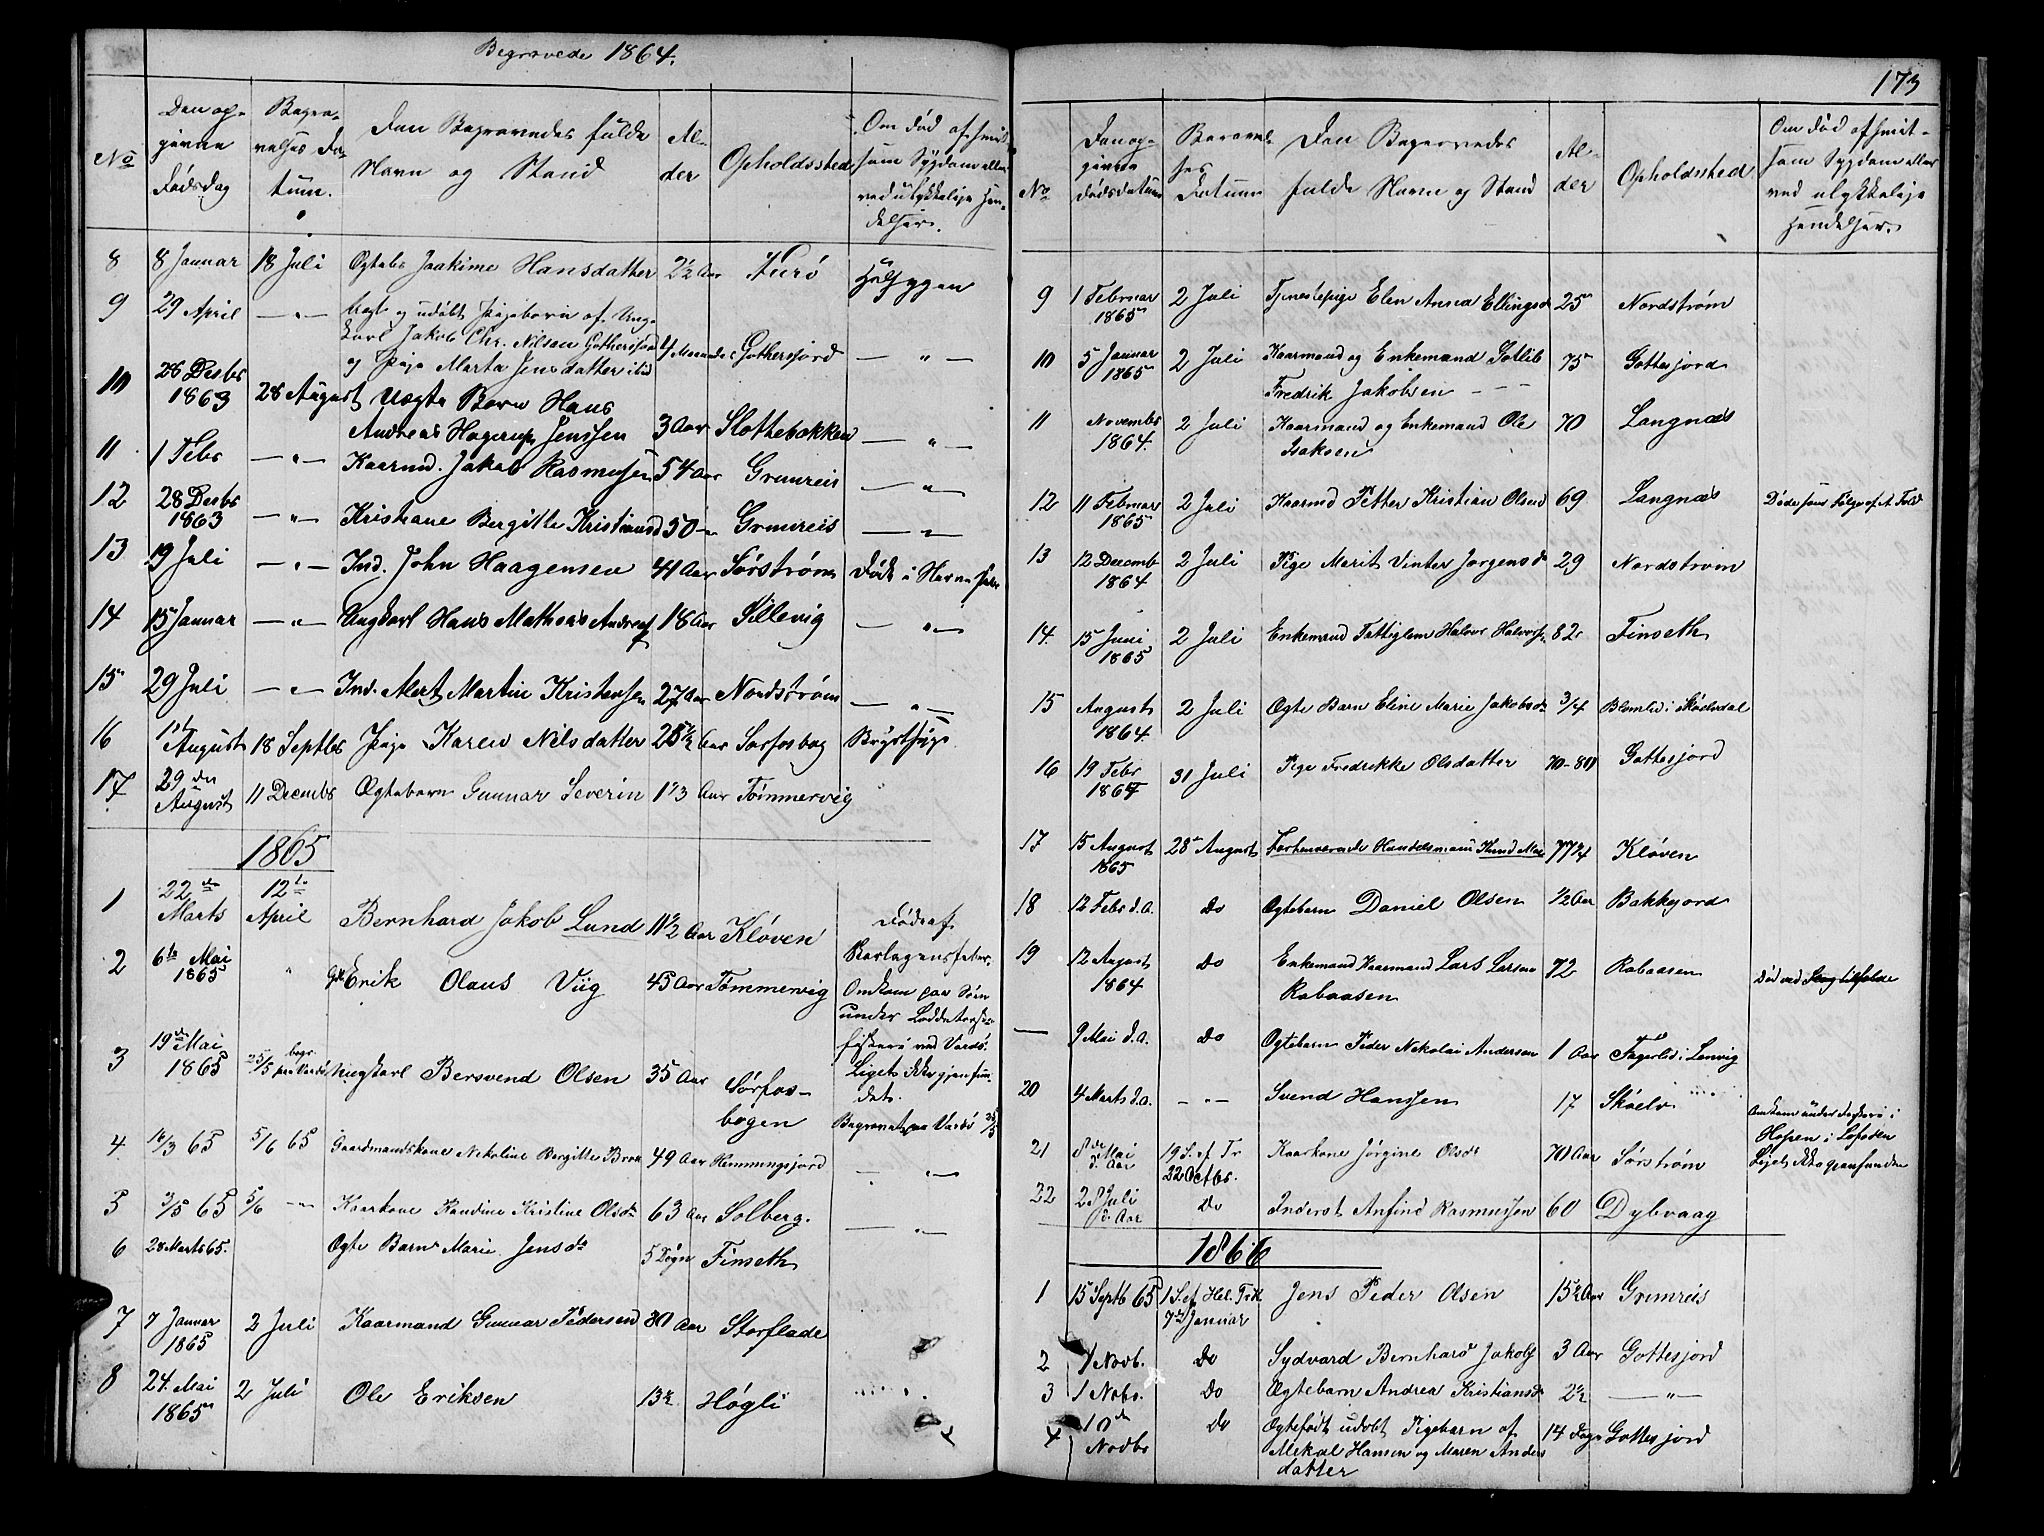 Begravede 1864.
No
Den op-
givne
Dødsdag
Begra-
velses Da-
tum.
Den Begravedes fulde
Navn og Stand
Al-
der
Opholdssted
Om død af smit-
som Sygdom eller
ved ulykkelige Hæn-
delser.
8 8 Januar 18 Juli Ogtebr Joakime Hansdatter 2½ Aar Furö
9 29 April — " — og udöbt Pigebarn af Ung-
karl Jakob Chr. Nilsen Gothersfjord
og Pige Marta Jensdatter 4 Maaneder Gothersfjord — " —
10 28 Decbr
1863 28 August Uægte Barn Hans
Andreas Hagerup Jenssen 3 Aar Slottebakken — " —
11 1 Febr — " — Kaarmd. Jakob Rasmussen 54 Aar Grunreis — " —
12 28 Decbr
1863 — " — Kristiane Bergitte Kristiansd 50 — Grunreis — " —
13 19 Juli — " — Ind. John Haagensen 41 Aar Sørstrøm Døde i Nerve Feber
14 15 Januar — " — Ungkarl Hans Mathias Andreas 18 Aar Sillevig — " —
15 29 Juli — " — Ind. Mert Martin Kristensen 27 Aar Nordstrøm — " —
16 11
August 18 Septbr Pige Karen Nilsdatter 28½ Aar Sørfosbog Brystsyge
17 29 den
August 11 Decembr Ægtebarn Gunnar Severin 1 1/3 Aar Tömmervig
1865
1 22 de
Marts 12 te
April Bernhard Jakob Lund 11½ Aar Kløven Død af
2 6te Mai
1865 " Gbr Erik Olaus Viig 45 Aar Tömmervig Omkom paa Søen
under Loddetorske-
fiskeri ved Vardö.
Liget ikke gjenfun-
det.
3 19de Mai
1865 25/5 begr.
paa Vardö Ungkarl Bersvend Olsen 35 Aar Sørfos-
bogen Begravet paa Vardö 25/5
4 16/3 65 5/6 65 Gaardmandskone Nekoline Bergitte Brox 49 Aar Hemmingsjord — " —
5 3/5 65 5/6 — " — Kaarkone Randine Kristine Olsdr 63 Aar Solberg. — " —
6 28 Marts 65. Ogte Barn Marie Jensdr 5 Døgn Finseth
7 7 Januar
1865 2 Juli Kaarmand Gunnar Pedersen 80 Aar Storflade
8 24. Mai
1865 2 Juli Ole Eriksen 13½ Høgli
173
No
Den op-
givne
Dødsdatum
Begravel-
ses
Datum
Den Begravedes
fulde Navn og Stand
Al-
der
Opholdssted
Om Død af smit-
som Sygdom eller
ved ulykkelige
Hændelser.
9 1 Februar
1865 2 Juli Tjenestepige Elen Anna Ellingsd 25 Nordstrøm
10 5 Januar
1865 2 Juli Kaarmand og Enkemand Gotlib
Fredrik Jakobsen — — — 75 Gottesjord
11 Novembr
1864. 2 Juli Kaarmand og Enkemand Ole
Isaksen 70 Langnæs
12 11 Februar
1865 2 Juli Kaarmd Petter Kristian Olsen 69 Langnæs Døde som Følge af et Fald
13 12 Decemb
1864 2 Juli Pige Marit Vinter Jorgensdr 29 Nordstrøm
14. 15 Juni
1865 2 Juli Enkemand Fattiglem Halvor Halvors. 82 Finseth
15 August
1864. 2 Juli Ogte Barn Eline Marie Jakobsdr 3/4 Blomlid i Skødsdal
16 19 Febr
1864 31 Juli Pige Fredrikke Olsdatter 70-80 Gottesjord
17 15 August
1865 28 August Forhenværende Handelsmand Knud Moe 77¼ Kløven
18 12 Febr d.A. Do Ogtebarn Daniel Olsen ½ Aar Bakkejord
19 12 August
1864 Do Enkemand Kaarmand Lars Larsen
Rabaasen 72 Rabaasen Død ved Slagtilfelde
— 9 Mai d.A. Do Ogtebarn Peder Nekolai Andersen 1 Aar Fagerlid i Lenvig
20 4 Marts d.A. — " — Svend Hanssen 17 Skøelv Omkom under Fiskeri i
Hopen i Lofoden
Liget ikke gjenfunden
21 8de Mai
d. Aar 19 S. ef Tr
22 Octbr. Kaarkone Jørgine Olsdr 70 Aar Sørstrøm
22 28 Juli
d. Aar Do Inderst Anfind Rasmussen 60 Dybvaag
1866
1 15 Septb 65 1 S. ef Hel. Trk
7de Januar Jens Peder Olsen 15½ Aar Grunreis
2 1 Novb. Do Sydvard Bernhard Jakobs 3 Aar Gottesjord
3 1 Nobr. Do Ogtebarn Andrea Kristiansdr 2½ — " —
4 10 de
Nodbr Do Ogtefødt udobt Pigebarn af
Mekal Hansen og Maren Anders
datter 14 Dage Gottesjord